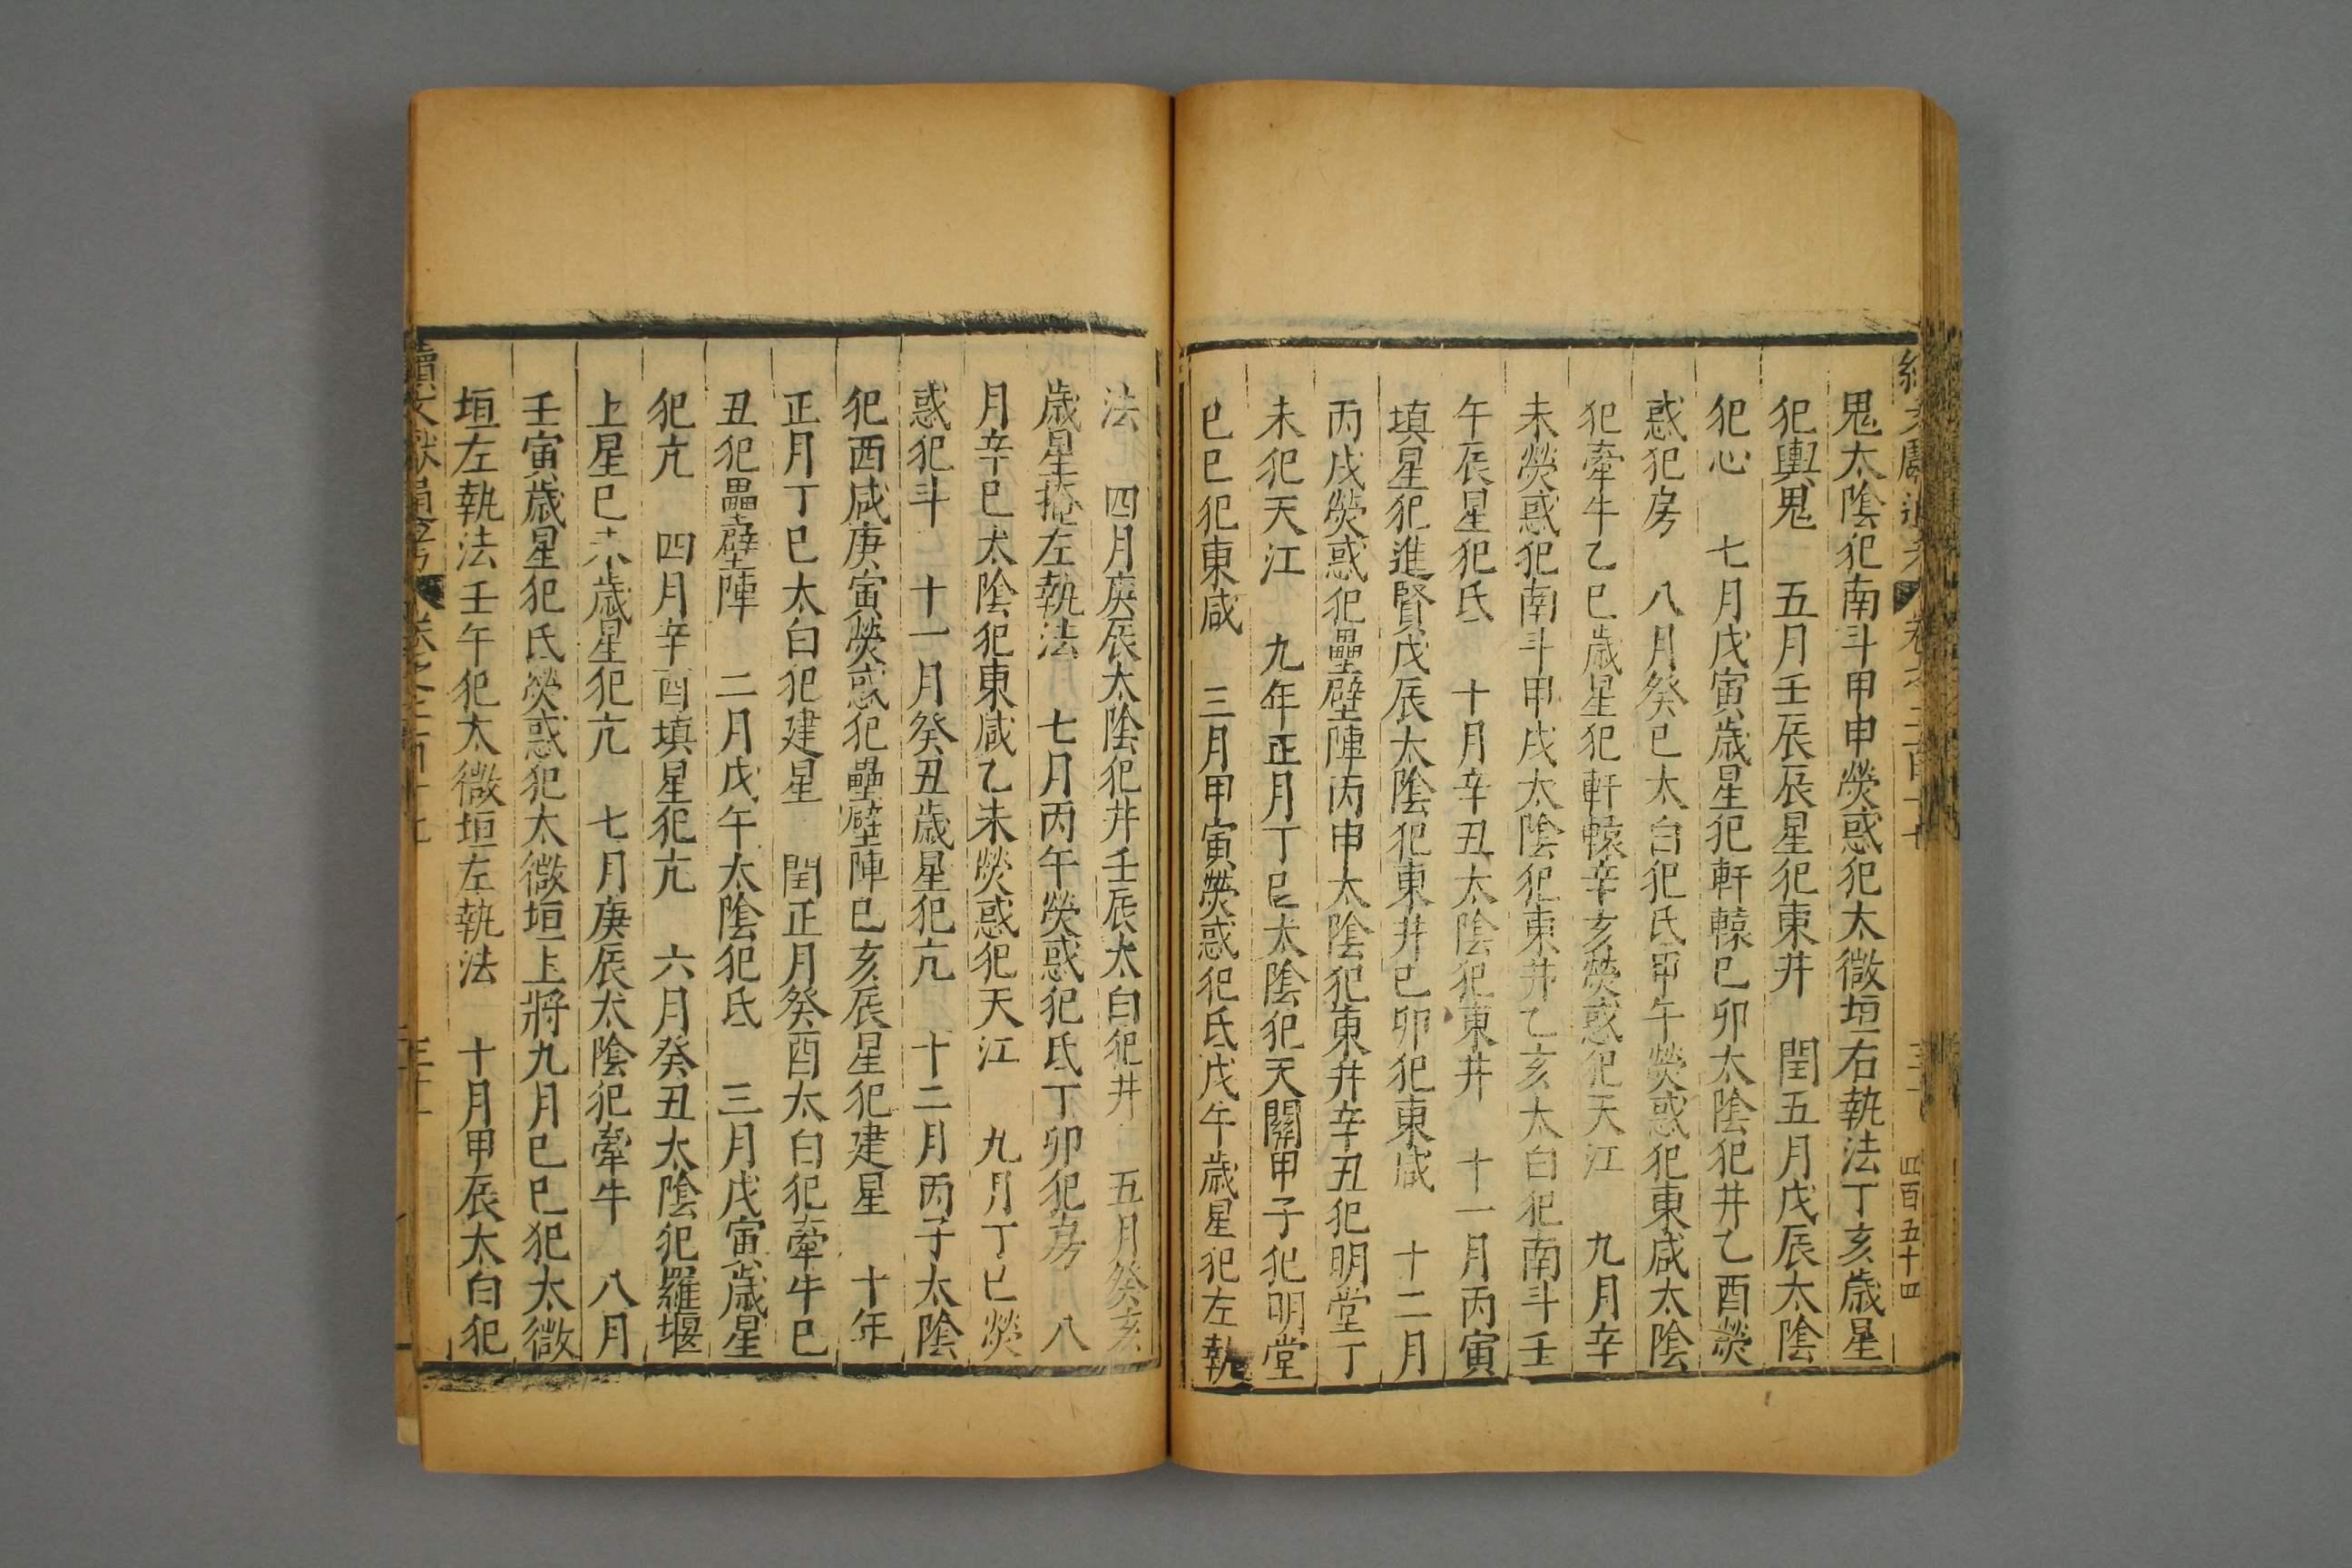 鬼太陰犯南斗甲申熒惑犯太微垣右執法丁亥歲星
犯輿鬼 五月壬辰辰星犯東井 閏五月戊辰太陰
犯心 七月戊寅歲星犯軒轅己卯太陰犯井乙酉熒
惑犯房 八月癸巳太白犯氐甲午熒惑犯東咸太陰
犯牽牛乙巳歲星犯軒轅辛亥熒惑犯天江 九月辛
未熒惑犯南斗甲戌太陰犯東井乙亥太白犯南斗壬
午辰星犯氐 十月辛丑太陰犯東井 十一月丙寅
填星犯進賢戊辰太陰犯東井己卯犯東咸 十二月
丙戌熒惑犯壘壁陣丙申太陰犯東井辛丑犯明堂丁
未犯天江 九年正月丁巳太陰犯天關甲子犯明堂
己巳犯東咸 三月甲寅熒惑犯氐戊午歲星犯左執
法 四月庚辰太陰犯井壬辰太白犯井 五月癸亥
歲星掩左執法 七月丙午熒惑犯氐丁卯犯房 八
月辛巳太陰犯東咸乙未熒惑犯天江 九月丁巳熒
惑犯斗 十一月癸丑歲星犯亢 十二月丙子太陰
犯西咸庚寅熒惑犯壘壁陣己亥辰星犯建星 十年
正月丁巳太白犯建星 閏正月癸酉太白犯牽牛己
丑犯壘壁陣 二月戊午太陰犯氐 三月戊寅歲星
犯亢 四月辛酉填星犯亢 六月癸丑太陰犯羅堰
上星己未歲星犯亢 七月庚辰太陰犯牽牛 八月
壬寅歲星犯氐熒惑犯太微垣上將九月己巳犯太微
垣左執法壬午犯太微垣左執法 十月甲辰太白犯
四百五十四